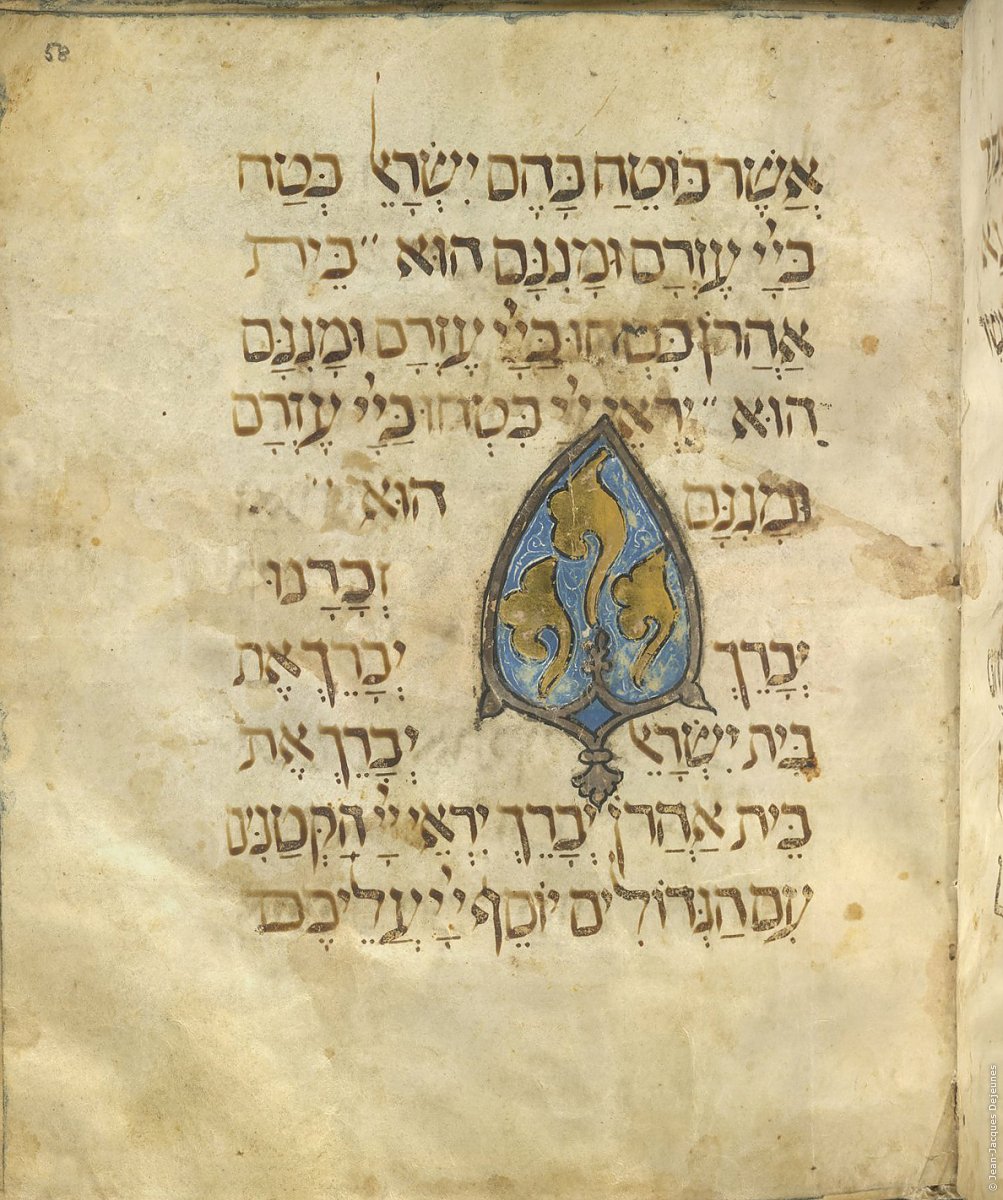 58
אֲשֶׁר בּוֹטֵחַ בָּהֶם יִשְׂרָאֵל בְּטַח
בַּיְיָ עֶזְרָם וּמָגִנָּם הוּא ״ בֵּית
אַהֲרֹן בִּטְחוּ בַּיְיָ עֶזְרָם וּמָגִנָּם
הוּא ״ יִרְאֵי יְיָ בִּטְחוּ בַּיְיָ עֶזְרָם
וּמָגִנָּם הוּא ״
זְכָרָנוּ
יְבָרֵךְ יְבָרֵךְ אֶת
בֵּית יִשְׂרָאֵל יְבָרֵךְ אֶת
בֵּית אַהֲרֹן יְבָרֵךְ יִרְאֵי יְיָ הַקְּטַנִּים
עִם הַגְּדוֹלִים יוֹסֵף יְיָ עֲלֵיכֶם
© Jean-Jacques Dejeunes